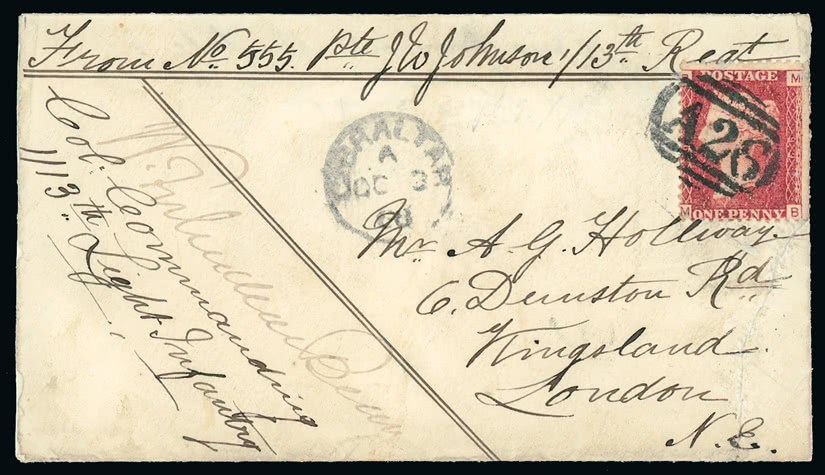 From No. 555. Pte J W Johnson 1/13th Regt
POSTAGE
M
A26
M ONE PENNY B
GIBRALTAR
A
OC 3
68
Mr A G Hollway
6. Demston Rd
Kingsland
London
N.E.
Col. Commanding
1/13th Light Infantry